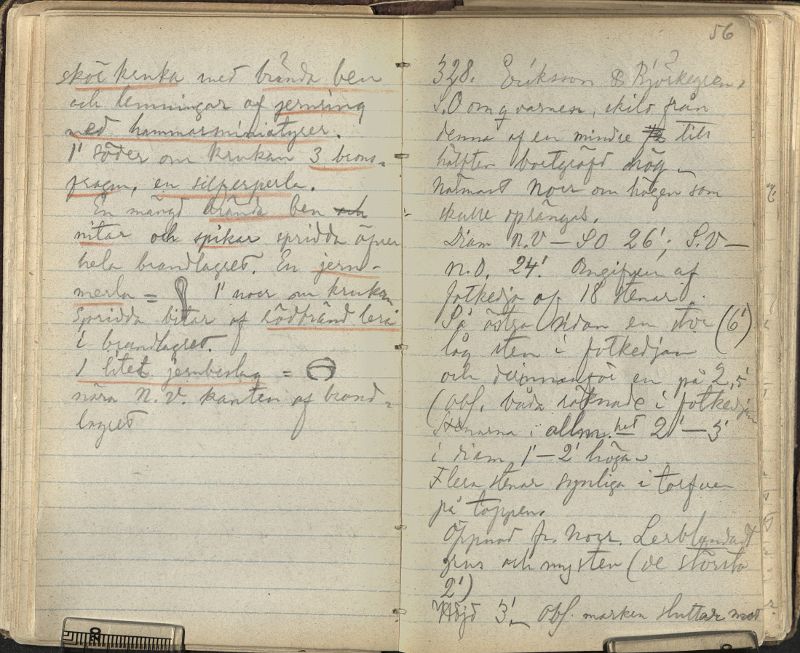 sköt kruka med brända ben
och lemningar af jernring
med hammarsminiatyrer.
1' söder om krukan 3 brons-
fragm. en silfverperla.
En mängd brända ben och
nitar och spikar spridda öfver
hela brandlagret. En jern-
merla = 1' norr om krukan
Spridda bitar af rödbränd lera
i brandlagret.
1 litet jernbeslag =
nära N.V. kanten af brand-
lagret
56
328. Eriksson & Björkegren.
S.O om qvarnen, skild från
denna af en mindre till
hälften bortgräfd hög
Närmast Norr om högen som
skulle sprängas.
Diam N.V – S.O 26'; S.V –
N.O. 24'. Omgifven af
fotkedja af 18 stenar.
På östra sidan en stor (6')
låg sten i fotkedjan
och derinnanför en på 2,5'
(obs. båda räknade i fotkedjan
Stenarna i allm.het 2' – 3'
i diam 1' – 2' höga
Flera stenar synliga i torfven
på toppen.
Öppnad fr. Norr. Lerblandadt
grus och mysten (de största
2')
Höjd 3'. Obs. marken sluttar mot